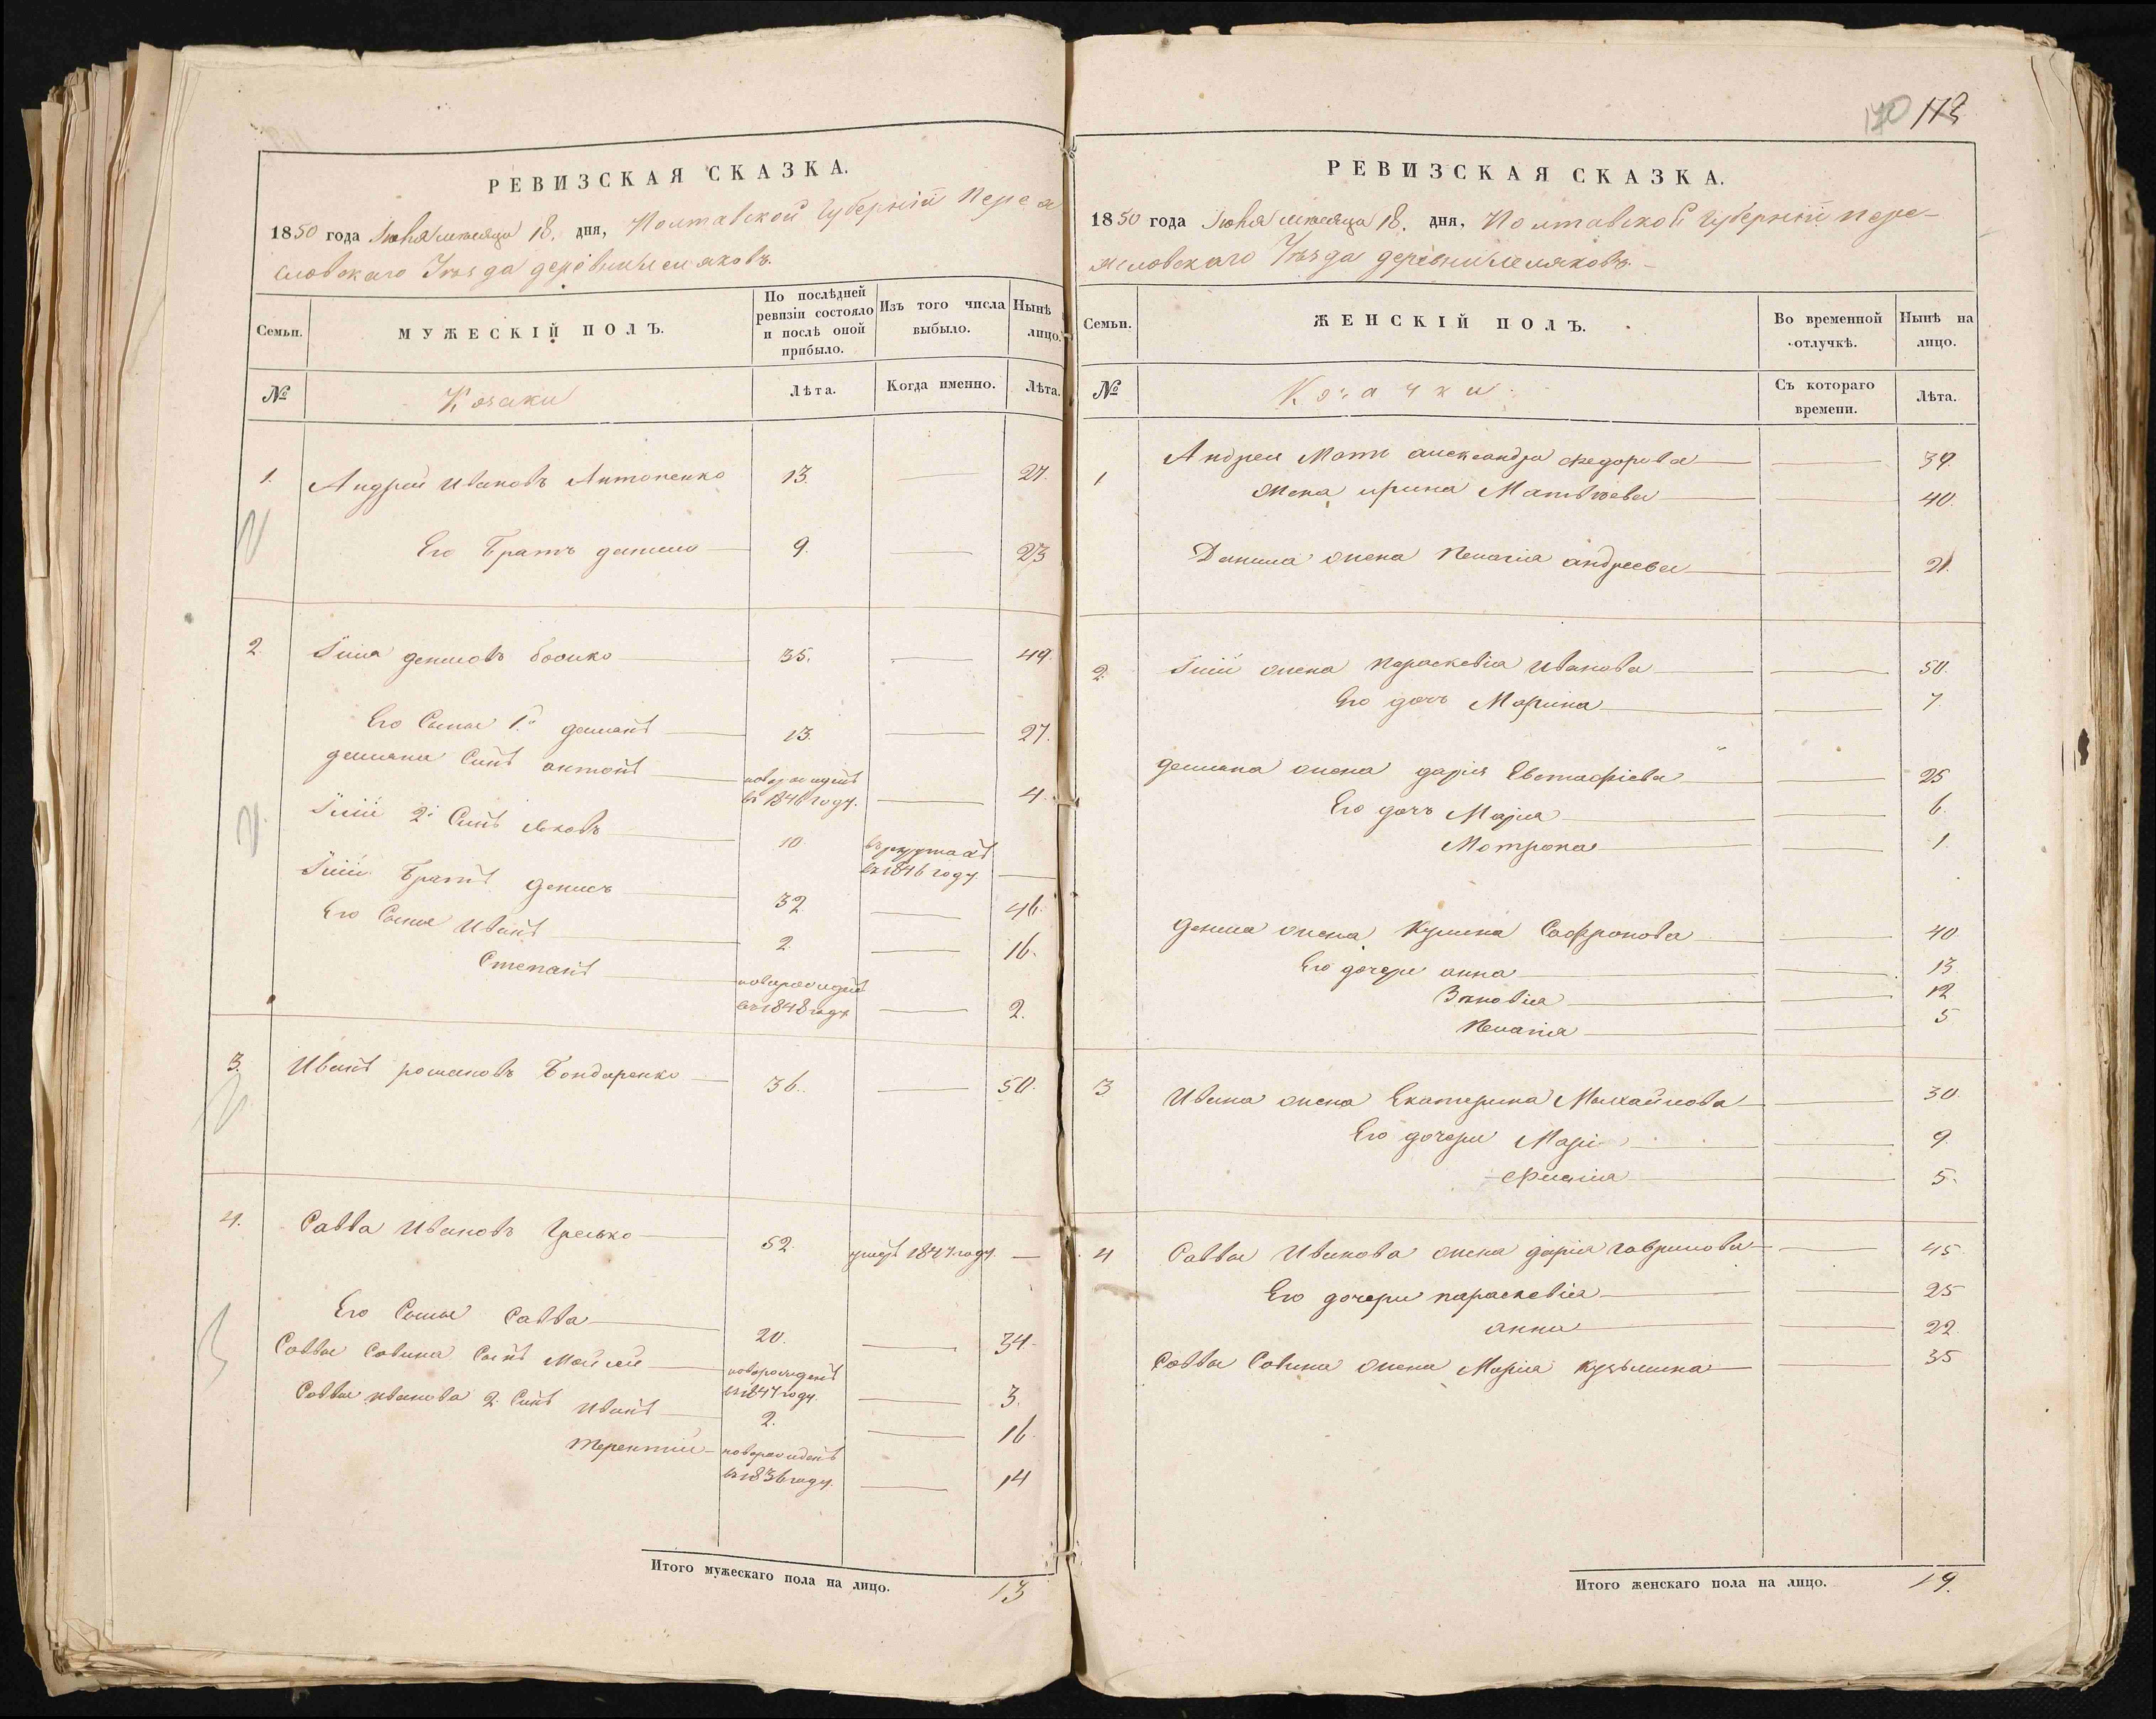 РЕВИЗСКАЯ СКАЗКА.
1850 года Іюня месяца 18. дня, Полтавской Губерніи Перея
словскаго Уезда деревни Меляковъ.
Семьи.
МУЖЕСКІЙ ПОЛЪ.
По послѣдней ревизіи состояло и послѣ оной прибыло.
Изъ того числа выбыло.
Нынѣ лицо.
№
Козаки
Лѣта.
Когда именно.
Лѣта.
1. Андрей Ивановъ Антоненко 13. — 27.
Его Братъ данило 9. — 23
2 Іина денисовъ бойко 35. — 49.
Его Сыны 1й демьянъ 13. — 27.
демьяна Синъ антонъ новорожденъ
въ 1846 году. — 4.
2й Синъ Яковъ 10 въ рекрутахъ
въ 1846 году. —
Братъ денисъ 32 — 46.
Его Сыны Иванъ 2. — 16.
Степанъ новорожденъ
въ 1848 году — 2.
3. Иванъ романовъ Бондаренко 36. — 50.
4. Савва Ивановъ Грелько 52. умеръ 1847 году. —
Его Сыны Савва 20. — 34.
Саввы Савина Сынъ Мойсей новорожденъ
въ 1847 году. — 3.
Саввы иванова 2. Синъ Иванъ 2. — 16
терентий новорожденъ
въ 1836 году. — 14
Итого мужескаго пола на лицо. 13
170 173
РЕВИЗСКАЯ СКАЗКА.
1850 года Іюня месяца 18. дня, Полтавской Губерніи пере-
ясловскаго Уезда деревни Меляковъ.
Семьи.
ЖЕНСКІЙ ПОЛЪ.
Во временной отлучкѣ.
Нынѣ на лицо.
№
Козачки
Съ котораго времени.
Лѣта.
1 Андрея Мать александра Федорова — 39.
Жена ирина Матвѣева — 40.
Данила жена Пелагія андреева — 21.
2. жена параскевіа Иванова — 50.
Его дочъ Марина — 7
демьяна жена дарія Евстафіева — 25
Его дочъ Марія — 6.
Мотрона — 1.
дениса жена Кулина Сафронова — 40
Его дочери анна — 13
Зиновіа — 12
Пелагіа — 5
3 Ивана жена Екатерина Михайлова — 30.
Его дочери Марі — 9.
— 5.
4 Саввы Иванова жена дарія гаврилова — 45.
Его дочери параскевіа — 25
анна — 22
Саввы Савина жена Марія кузьмина — 35
Итого женскаго пола на лицо. 19.